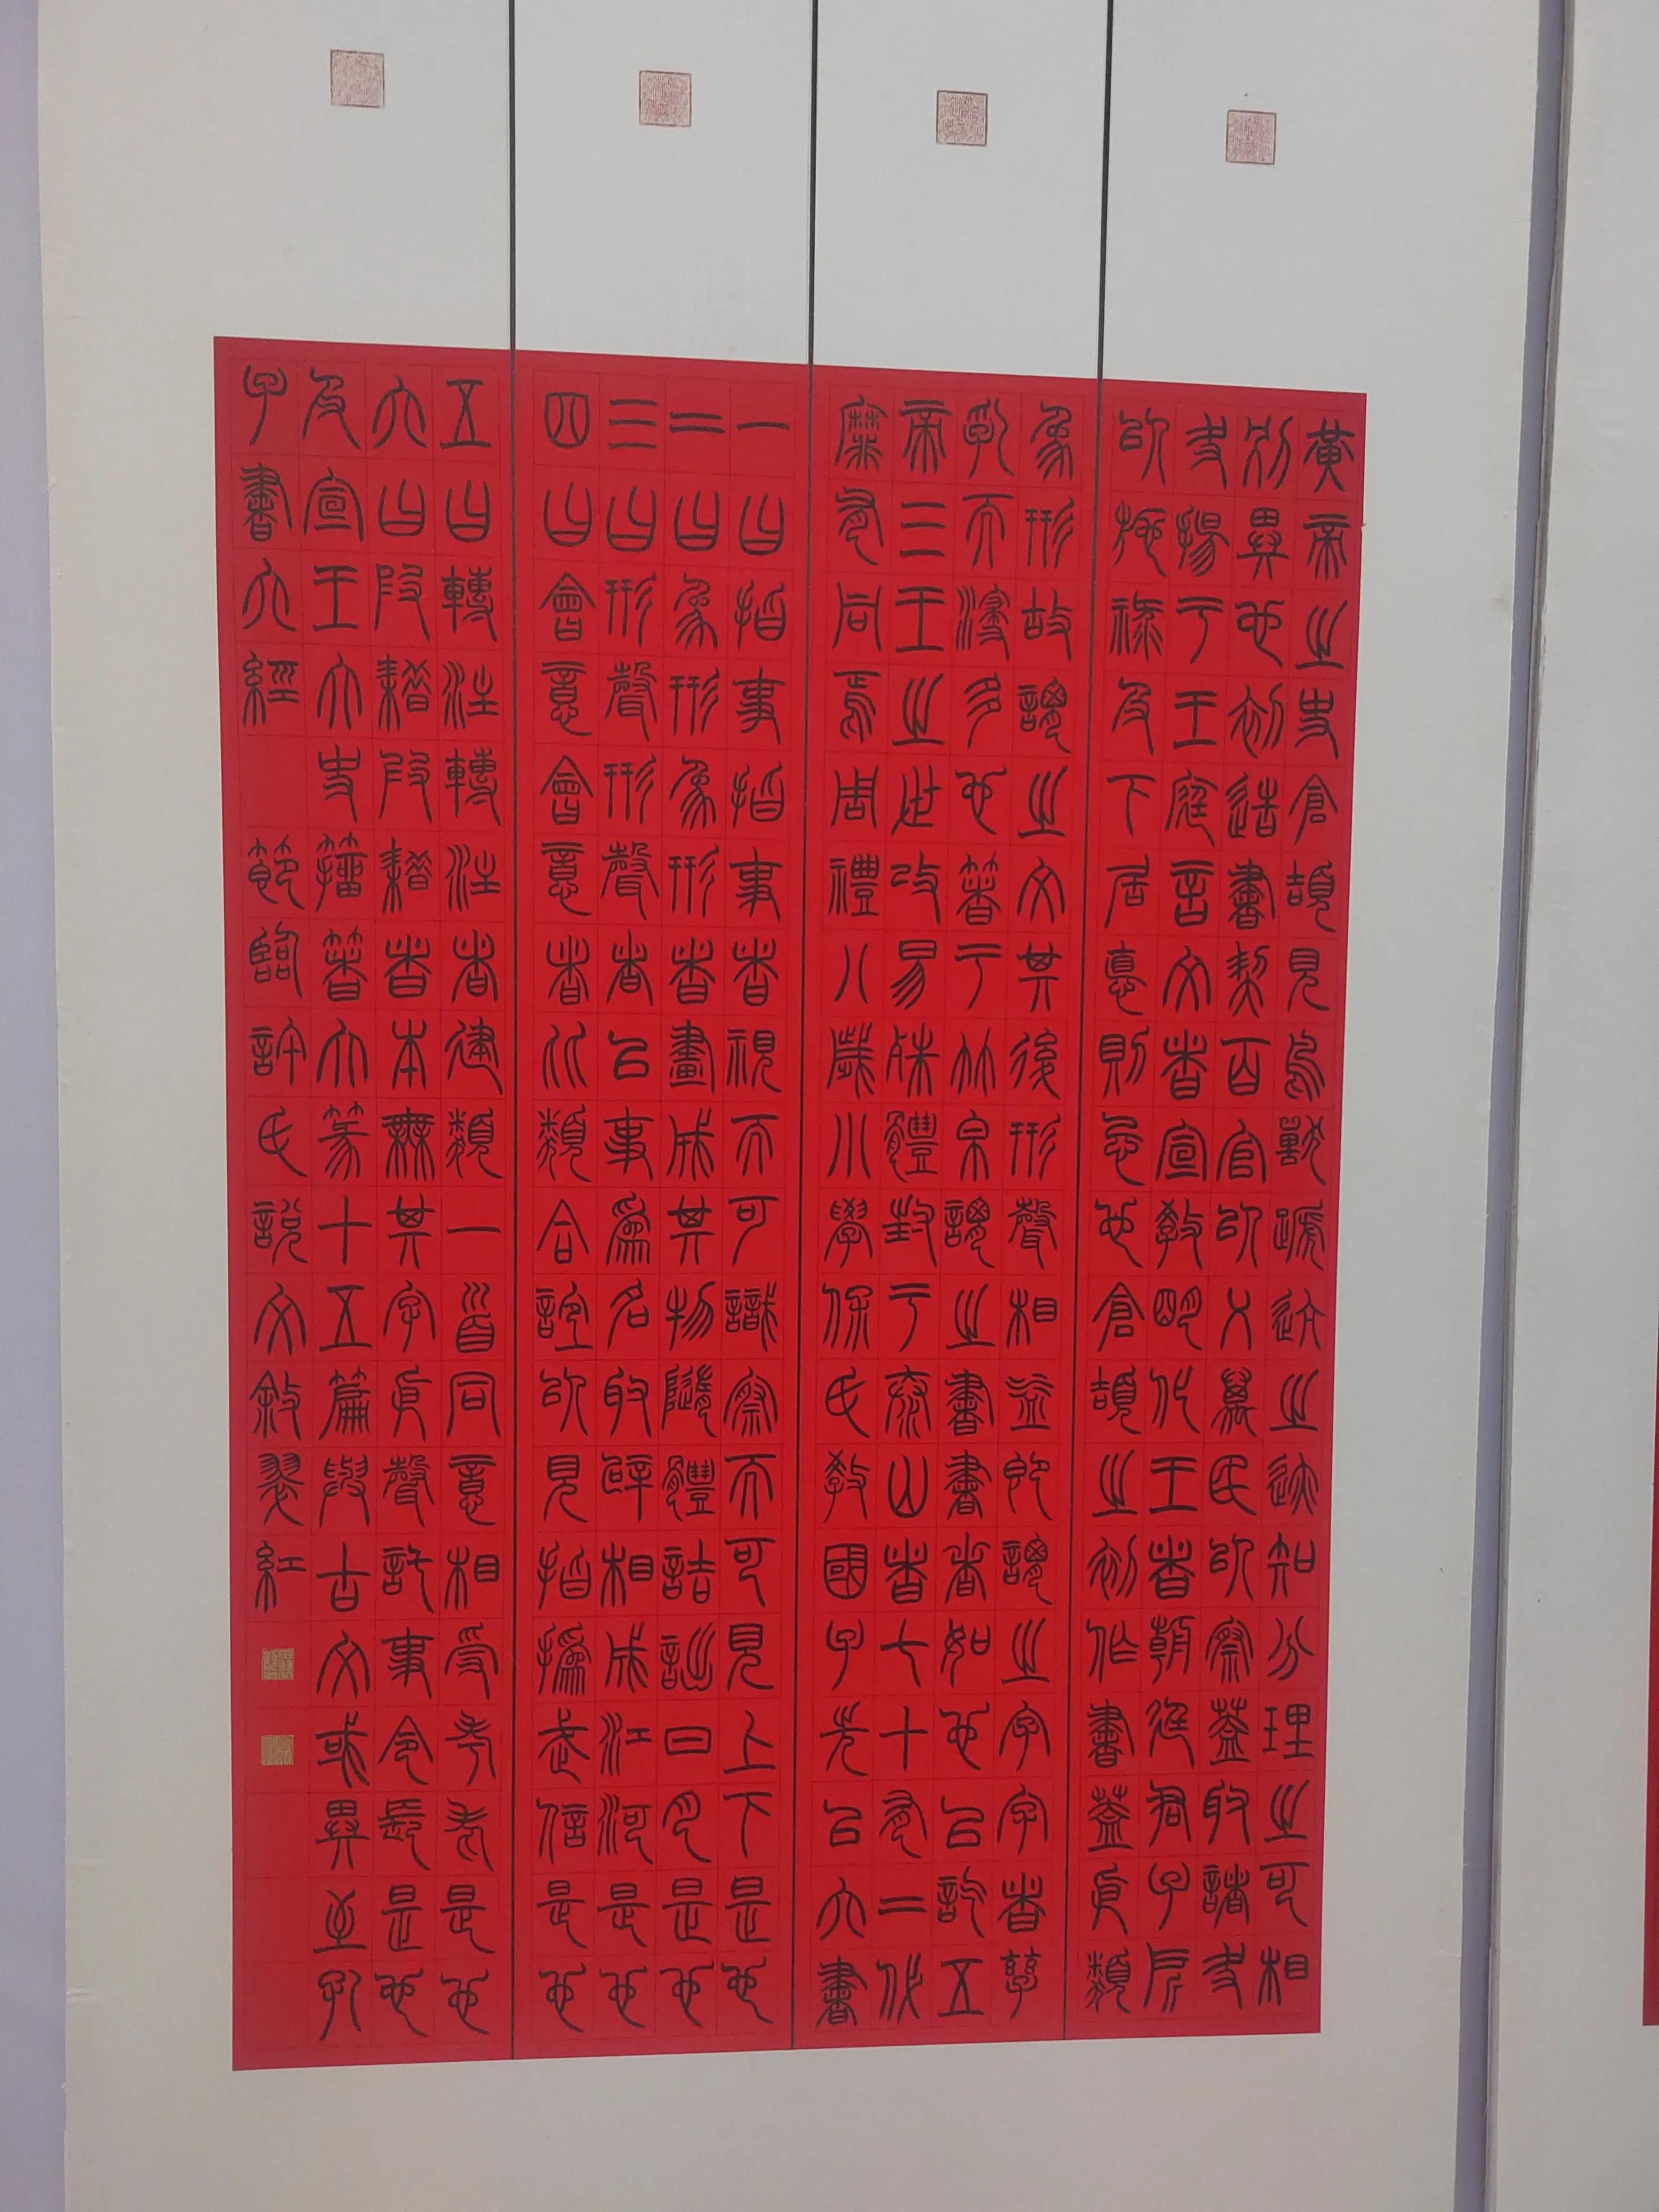 黃帝之史倉頡見鳥獸蹏迒之迹知分理之可相
別異也初造書契百官以乂萬民以察蓋取諸夬
夬揚于王庭言文者宣教明化王者朝廷君子所
以施祿及下居悳則忌也倉頡之初作書蓋依類
象形故謂之文其後形聲相益即謂之字字者孳
乳而浸多也箸于竹帛謂之書書者如也以訖五
帝三王之世改易殊體封于泰山者七十有二代
靡有同焉周禮八歲小學保氏教國子先以六書
一曰指事指事者視而可識察而可見上下是也
二曰象形象形者畫成其物隨體詰詘日月是也
三曰形聲形聲者以事為名取譬相成江河是也
四曰會意會意者比類合誼以見指撝武信是也
五曰轉注轉注者建類一首同意相受考老是也
六曰假借假借者本無其字依聲託事令長是也
及宣王大史籀箸大篆十五篇與古文或異至孔
子書六經 節臨許氏說文敘翠紅